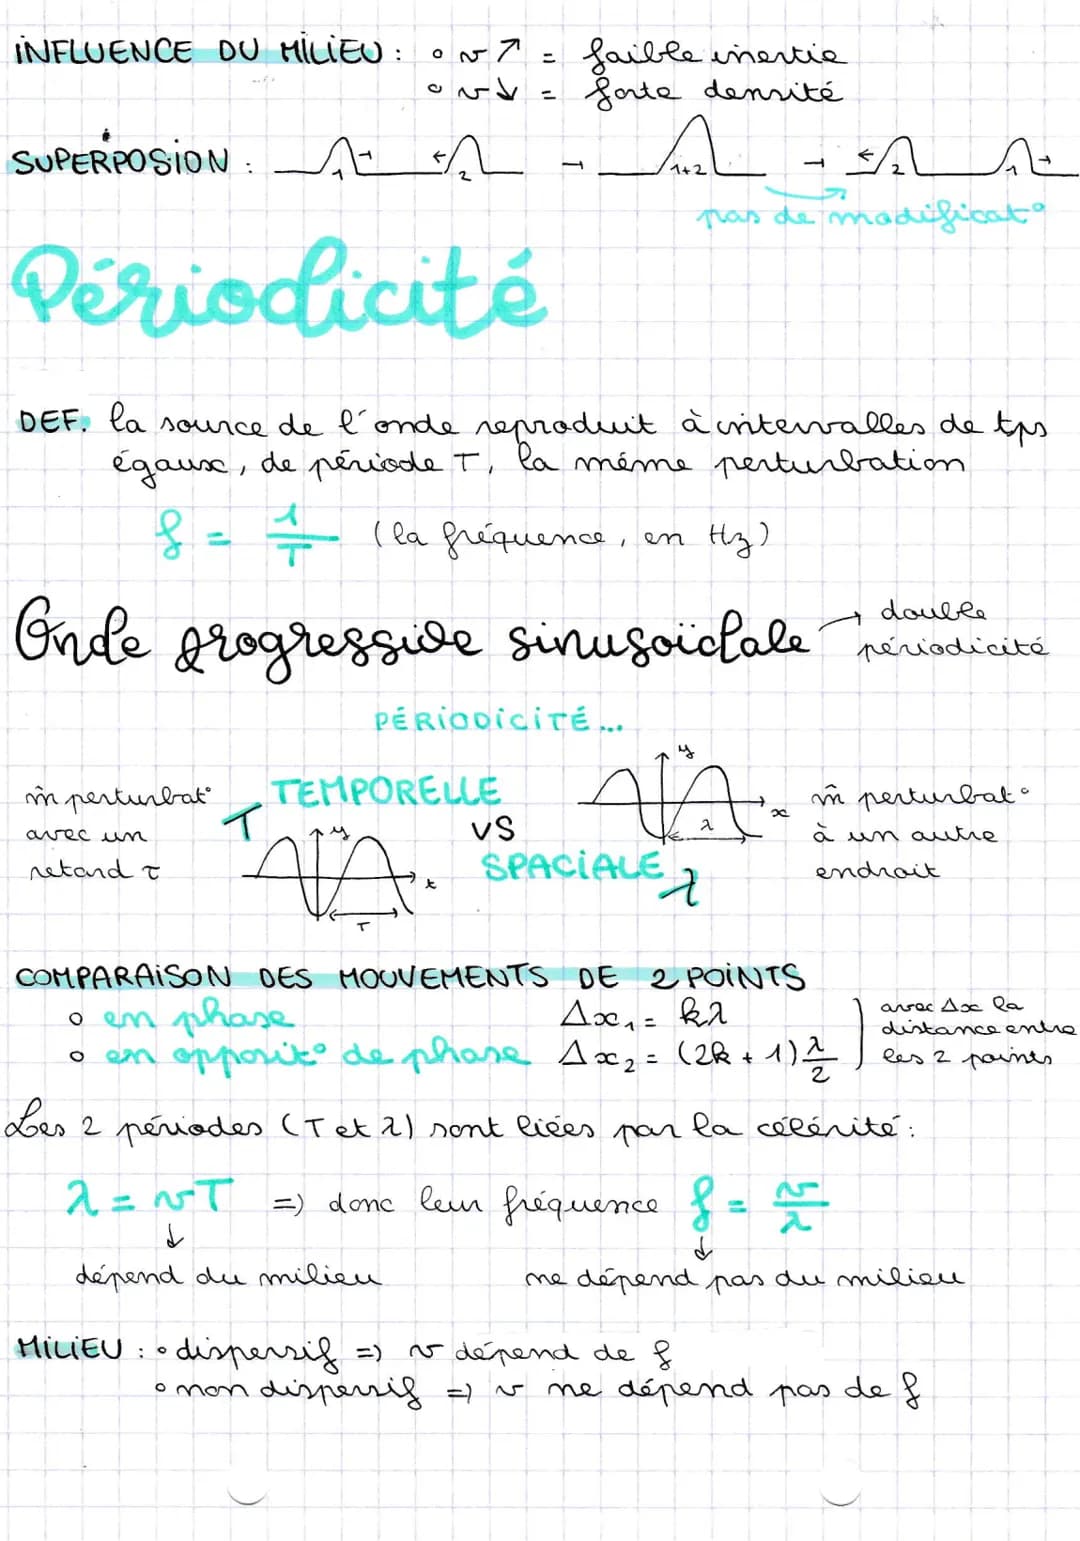 INFLUENCE DU MILIEU : ∘ v ↗ = faible inertie
∘ v ↓ = forte densité
SUPERPOSION : 1 → ← 2 → 1+2 → ← 2 1 →
pas de modificat°
Périodicité
DEF. la source de l'onde reproduit à intervalles de tps
égaux, de période T, la même perturbation
f = 1/T (la fréquence, en Hz)
Onde progressive sinusoïdale → double
périodicité
PÉRIODICITÉ...
m̂ perturbat°
avec un
retard τ
T TEMPORELLE
VS
SPACIALE λ
y
t
T
y
x
λ
m̂ perturbat°
à un autre
endroit
COMPARAISON DES MOUVEMENTS DE 2 POINTS
∘ en phase Δx₁ = kλ
∘ en opposit° de phase Δx₂ = (2k + 1) λ/2
avec Δx la
distance entre
les 2 points
Les 2 périodes (T et λ) sont liées par la célérité :
λ = vT => donc leur fréquence f = v/λ
↓ ↓
dépend du milieu ne dépend pas du milieu
MILIEU : ∘ dispersif => v dépend de f
∘ non dispersif => v ne dépend pas de f